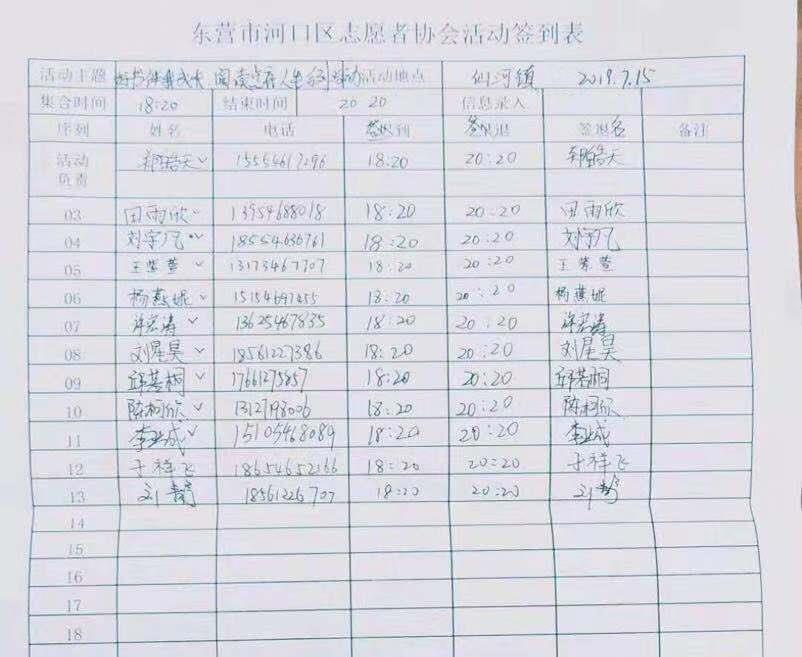 东营市河口区志愿者协会活动签到表
活动主题 图书伴我成长 阅读点亮人生系列活动 活动地点 仙河镇 2019.7.15
集合时间 18:20 结束时间 20 20 信息录入
序列 姓名 电话 签到 签退 签退名 备注
活动负责 郭皓天 15554617296 18:20 20:20 郭皓天
03 田雨欣 13954688018 18:20 20:20 田雨欣
04 刘宇凡 18554636761 18:20 20:20 刘宇凡
05 王紫萱 13173467707 18:20 20:20 王紫萱
06 杨燕妮 15154697455 18:20 20:20 杨燕妮
07 许宏涛 13625467835 18:20 20:20 许宏涛
08 刘星昊 18561227386 18:20 20:20 刘星昊
09 邱若桐 17661275857 18:20 20:20 邱若桐
10 陈柯欣 1312798006 18:20 20:20 陈柯欣
11 李成 15105468089 18:20 20:20 李成
12 于祥飞 18654652166 18:20 20:20 于祥飞
13 刘 18561226707 18:20 20:20 刘
14
15
16
17
18